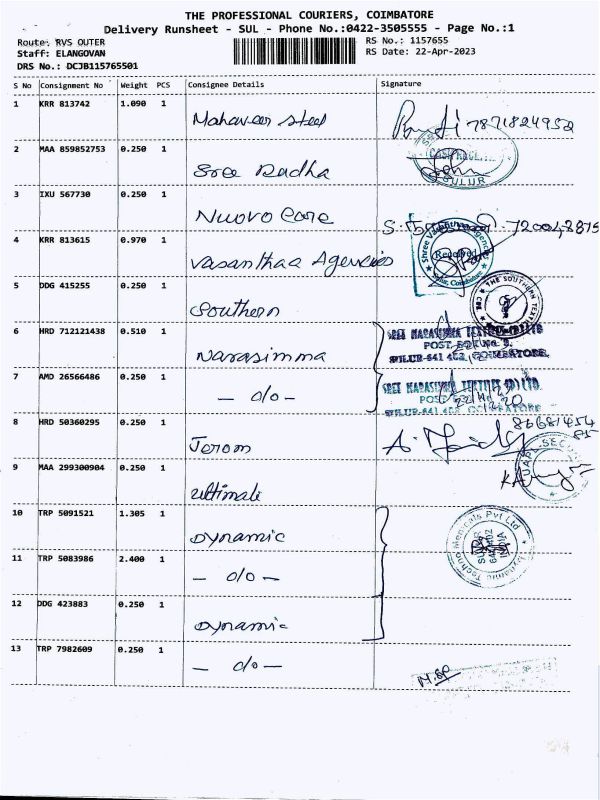 THE PROFESSIONAL COURIERS, COIMBATORE
Delivery Runsheet - SUL - Phone No.:0422-3505555 - Page No.:1
Route: RVS OUTER
RS No.: 1157655
Staff: ELANGOVAN
RS Date: 22-Apr-2023
DRS No.: DCJB115765501
S No Consignment No Weight PCS Consignee Details Signature
1 KRR 813742 1.090 1 Mahaveer steel 7871824952
2 MAA 859852753 0.250 1 Sree Radha
SULUR
3 IXU 567730 0.250 1 Nuovo Care
4 KRR 813615 0.970 1 Vasanthaa Agencies
Received
5 DDG 415255 0.250 1 Southern
THE SOUTHERN
6 HRD 712121438 0.510 1 Narasimma
SREE NARASIMHA TEXTILES (P) LTD
POST BOX No. 9.
SULUR-641 402, COIMBATORE.
7 AMD 26566486 0.250 1 — o/o —
SREE NARASIMHA TEXTILES (P) LTD.
8 HRD 50360295 0.250 1 Jerom
9 MAA 299300904 0.250 1 Ultimate
10 TRP 5091521 1.305 1 Dynamic
Dynamic Techno Medicals Pvt Ltd
11 TRP 5083986 2.400 1 — o/o —
12 DDG 423883 0.250 1 Dynamic
13 TRP 7982609 0.250 1 — o/o —